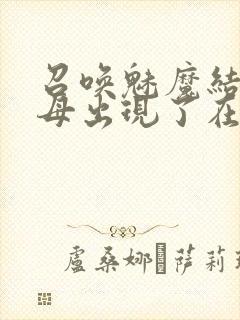 召喚魅魔結
母出現了在
盧桑娜·薩莉